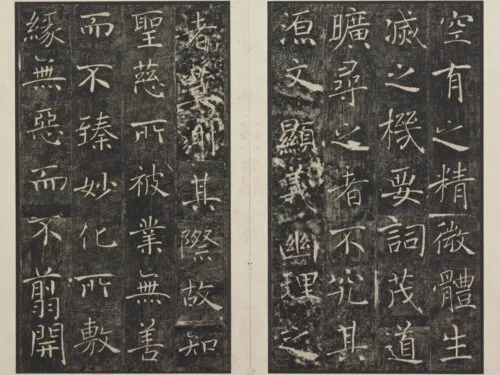 空有之精微體生
滅之機要詞茂道
曠尋之者不究其
源文顯義幽理之
者莫測其際故知
聖慈所被業無善
而不臻妙化所敷
緣無惡而不翦開